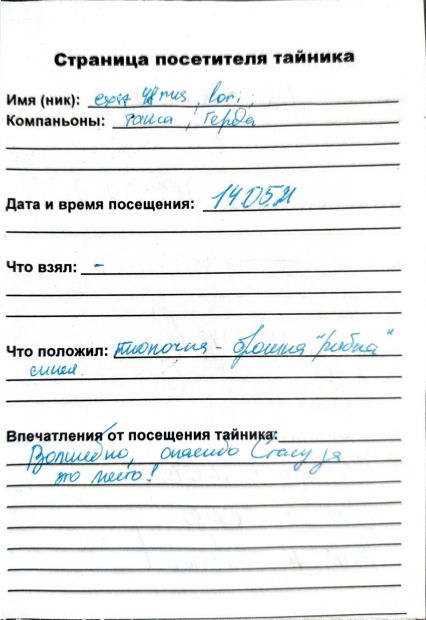 Страница посетителя тайника
Имя (ник): lori,
Компаньоны: Таиса, Герда
Дата и время посещения: 14.05.21
Что взял: -
Что положил: брошка "рыбка"
синяя.
Впечатления от посещения тайника:
Волшебно, спасибо Стасу за
это место!